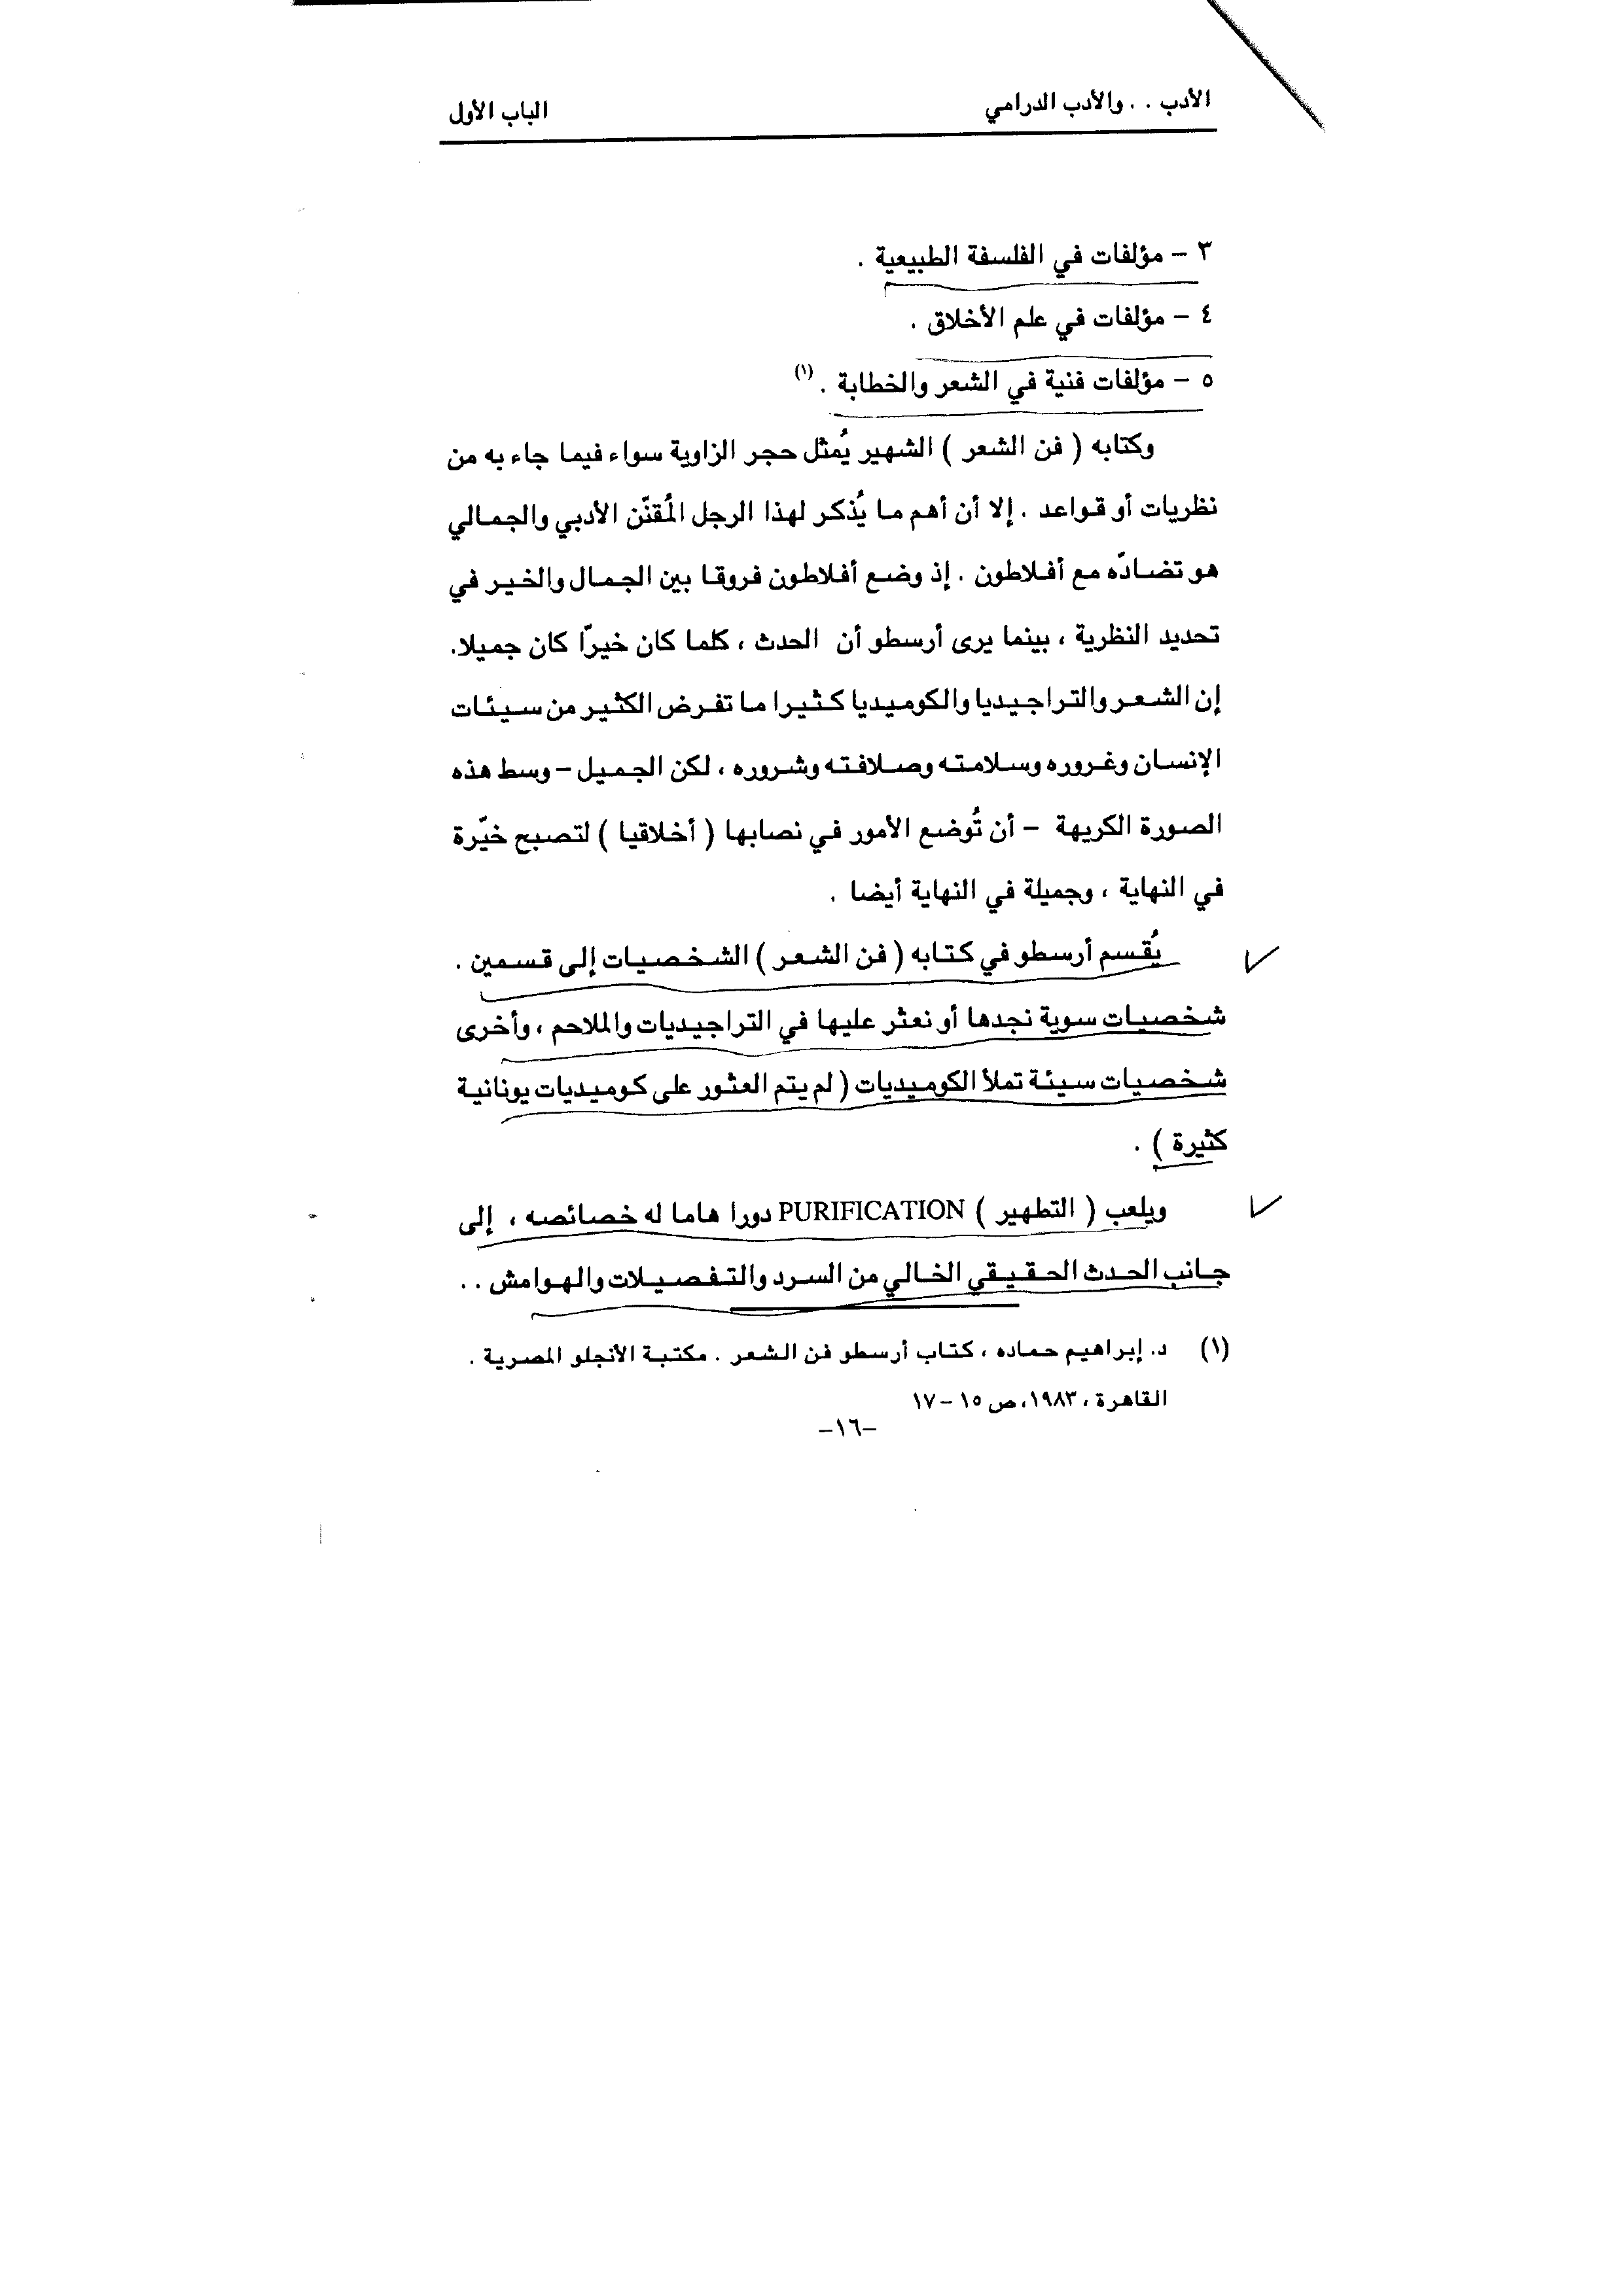 الأدب . . والأدب الدرامي
الباب الأول
٣ – مؤلفات في الفلسفة الطبيعية .
٤ – مؤلفات في علم الأخلاق .
٥ – مؤلفات فنية في الشعر والخطابة . (١)
وكتابه ( فن الشعر ) الشهير يُمثل حجر الزاوية سواء فيما جاء به من
نظريات أو قواعد . إلا أن أهم ما يُذكر لهذا الرجل المُقنّن الأدبي والجمالي
هو تضادّه مع أفلاطون . إذ وضع أفلاطون فروقا بين الجمال والخير في
تحديد النظرية ، بينما يرى أرسطو أن الحدث ، كلما كان خيرّا كان جميلا.
إن الشعر والتراجيديا والكوميديا كثيرا ما تفرض الكثير من سيئات
الإنسان وغروره وسلامته وصلافته وشروره ، لكن الجميل – وسط هذه
الصورة الكريهة – أن تُوضع الأمور في نصابها ( أخلاقيا ) لتصبح خيّرة
في النهاية ، وجميلة في النهاية أيضا .
يُقسم أرسطو في كتابه ( فن الشعر ) الشخصيات إلى قسمين .
شخصيات سوية نجدها أو نعثر عليها في التراجيديات والملاحم ، وأخرى
شخصيات سيئة تملأ الكوميديات ( لم يتم العثور على كوميديات يونانية
كثيرة ) .
ويلعب ( التطهير ) PURIFICATION دورا هاما له خصائصه ، إلى
جانب الحدث الحقيقي الخالي من السرد والتفصيلات والهوامش . .
(١) د. إبراهيم حماده ، كتاب أرسطو فن الشعر . مكتبة الأنجلو المصرية .
القاهرة ، ١٩٨٣، ص ١٥ – ١٧
–١٦–